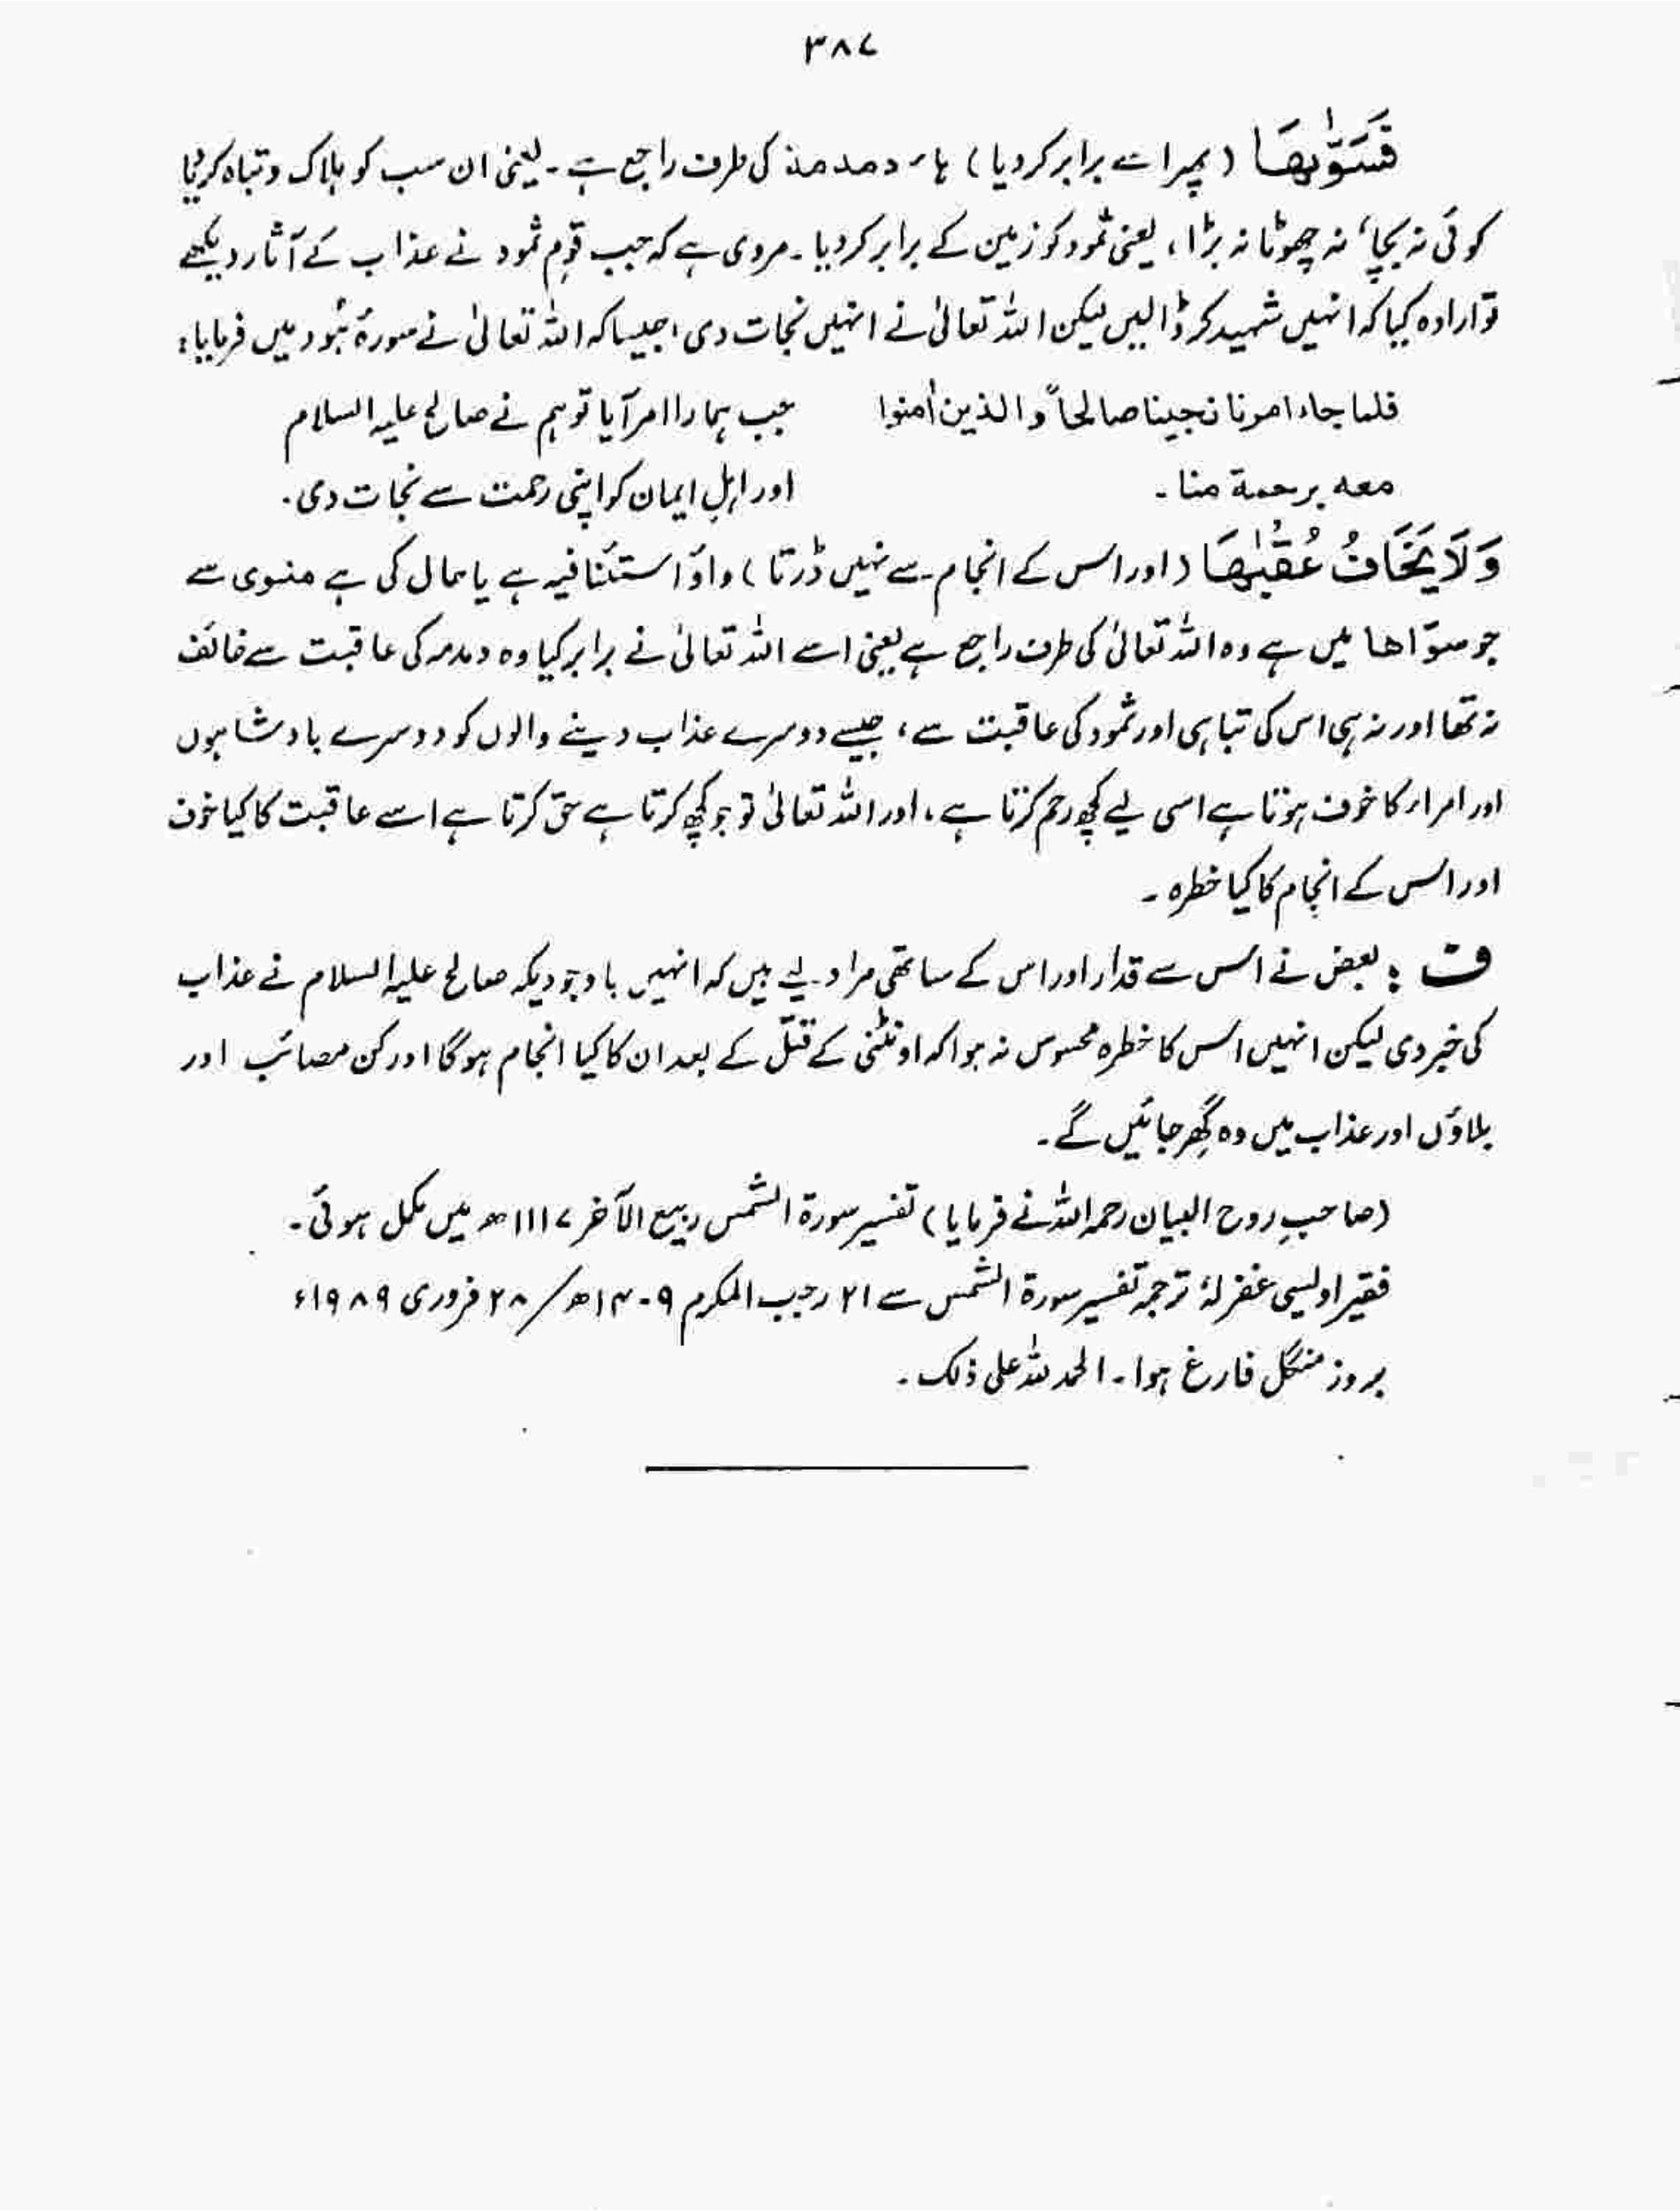 ۳۸۷
فَسَوّٰىهَا (پھر اسے برابر کردیا) ہاء دمدمۃ کی طرف راجع ہے۔ یعنی ان سب کو ہلاک و تباہ کردیا
کوئی نہ بچا، نہ چھوٹا نہ بڑا، یعنی ثمود کو زمین کے برابر کردیا۔ مروی ہے کہ جب قومِ ثمود نے عذاب کے آثار دیکھے
تو ارادہ کیا کہ انہیں شہید کر ڈالیں لیکن اللہ تعالیٰ نے انہیں نجات دی، جیسا کہ اللہ تعالیٰ نے سورۂ ہُود میں فرمایا:
فلما جاء امرنا نجینا صالحاً والذین اٰمنوا جب ہمارا امر آیا تو ہم نے صالح علیہ السلام
معه برحمة منا۔ اور اہلِ ایمان کو اپنی رحمت سے نجات دی۔
وَلَا يَخَافُ عُقْبٰهَا (اور اس کے انجام سے نہیں ڈرتا) واؤ استئنافیہ ہے یا حال کی ہے منوی سے
جو سوّاھا میں ہے وہ اللہ تعالیٰ کی طرف راجع ہے یعنی اسے اللہ تعالیٰ نے برابر کیا وہ دمدمہ کی عاقبت سے خائف
نہ تھا اور نہ ہی اس کی تباہی اور ثمود کی عاقبت سے، جیسے دوسرے عذاب دینے والوں کو دوسرے بادشاہوں
اور امراء کا خوف ہوتا ہے اسی لیے کچھ رحم کرتا ہے، اور اللہ تعالیٰ تو جو کچھ کرتا ہے حق کرتا ہے اسے عاقبت کا کیا خوف
اور اس کے انجام کا کیا خطرہ۔
ف : بعض نے اس سے قدار اور اس کے ساتھی مراد لیے ہیں کہ انہیں باوجودیکہ صالح علیہ السلام نے عذاب
کی خبر دی لیکن انہیں اس کا خطرہ محسوس نہ ہوا کہ اونٹنی کے قتل کے بعد ان کا کیا انجام ہوگا اور کن مصائب اور
بلاؤں اور عذاب میں وہ گِھر جائیں گے۔
(صاحبِ روح البیان رحمہ اللہ نے فرمایا) تفسیر سورۃ الشمس ربیع الآخر ۱۱۱۷ھ میں مکمل ہوئی۔
فقیر اویسی غفرلہٗ ترجمہ تفسیر سورۃ الشمس سے ۲۱ رجب المکرم ۱۴۰۹ھ/ ۲۸ فروری ۱۹۸۹ء
بروز منگل فارغ ہوا۔ الحمد للہ علی ذلک۔